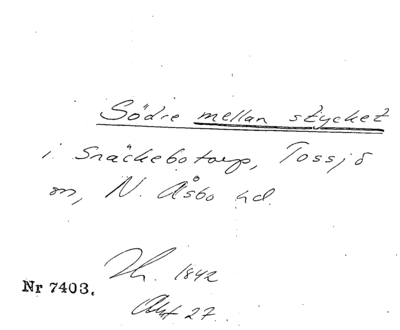 Södre mellan stycket
i Snäckebotorp, Tossjö
sn, N. Åsbo hd.
Th. 1842
Akt 27.
Nr 7403.